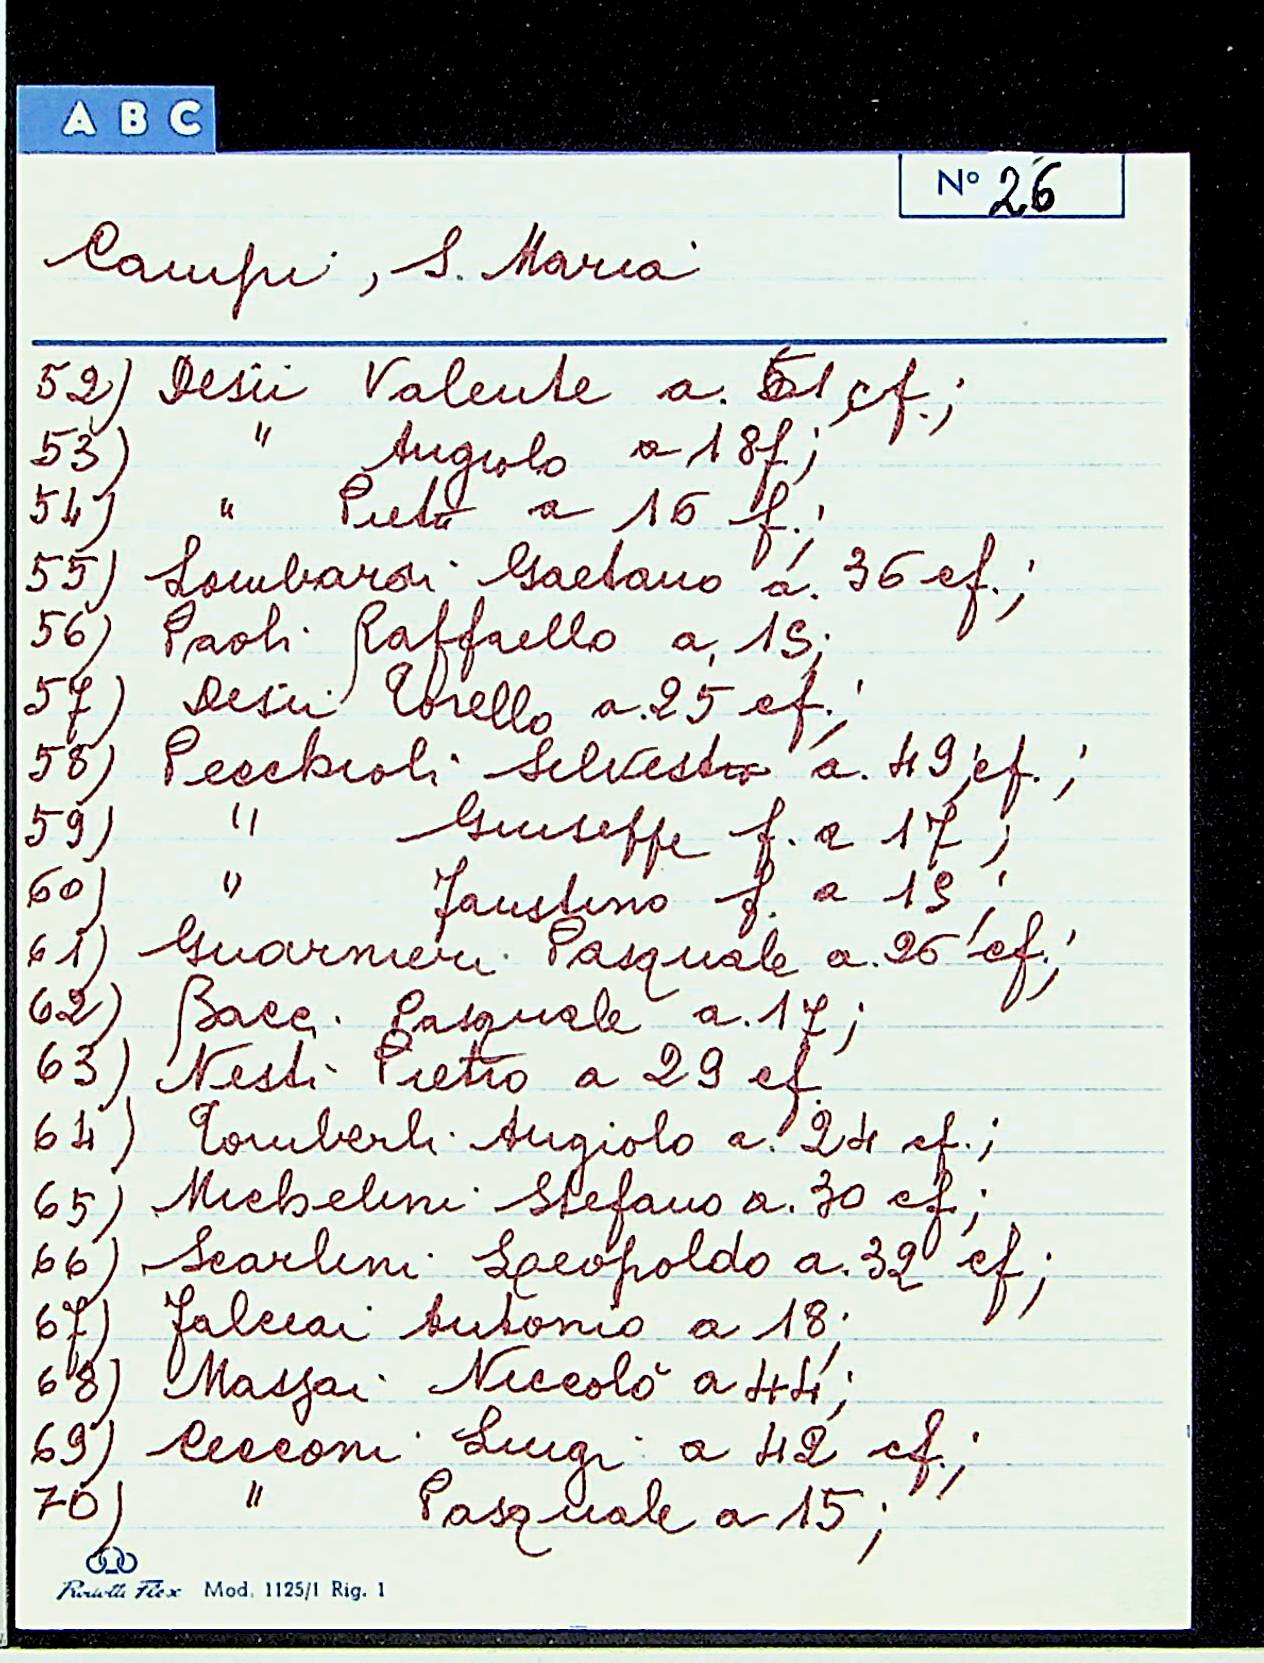 A B C
N° 26
Campi, S. Maria
52) Desii Valente a. 51 cf.;
53) " Angiolo a 18 f;
54) " Pietro a 16 f.;
55) Lombardi Gaetano a. 36 cf.;
56) Paoli Raffaello a. 19;
57) Desii Torello a. 25 cf.;
58) Pecchioli Silvestro a. 49 cf.;
59) " Giuseppe f. a 17;
60) " Faustino f. a 19;
61) Guarnieri Pasquale a. 26 cf.;
62) Bacci Pasquale a. 17;
63) Nesti Pietro a 29 cf.
64) Tomberli Angiolo a. 24 cf.;
65) Michelini Stefano a. 30 cf.;
66) Scarlini Leopoldo a. 32 cf;
67) Falciai Antonio a 18;
68) Massai Niccolò a 44;
69) Cecconi Luigi a 42 cf.;
70) " Pasquale a 15;
Mod. 1125/1 Rig. 1